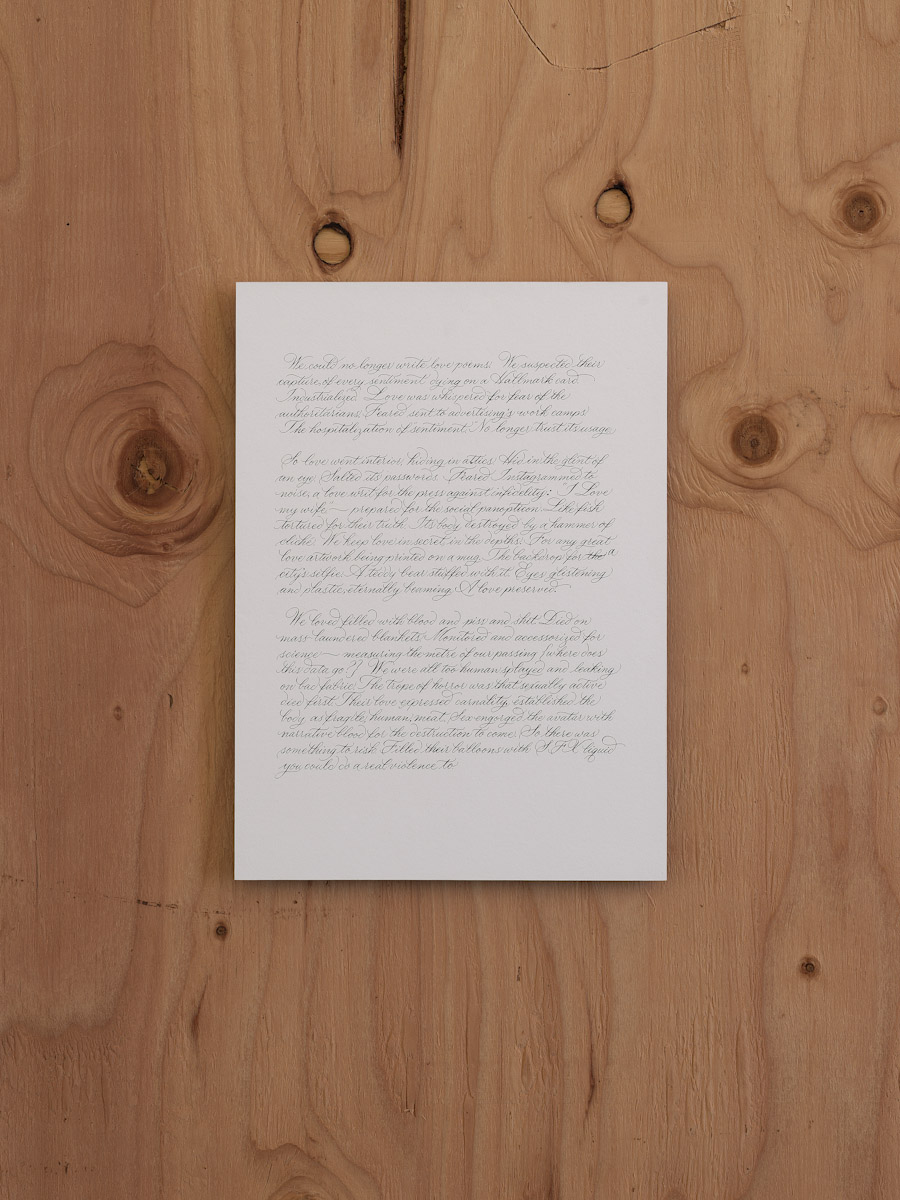 We could no longer write love poems. We suspected their
capture, of every sentiment dying on a Hallmark card.
Industrialized. Love was whispered for fear of the
authoritarians. Feared sent to advertising's work camps
The hospitalization of sentiment. No longer trust its usage.
So love went interior, hiding in attics. Hid in the glint of
an eye. Salted its passwords. Feared Instagrammed to
noise, a love writ for the press against infidelity: "I Love
my wife" — prepared for the social panopticon. Like fish
tortured for their truth. Its body destroyed by a hammer of
cliché. We keep love in secret, in the depths. For any great
love artwork being printed on a mug. The backdrop for a
city's selfie. A teddy bear stuffed with it. Eyes glistening
and plastic, eternally beaming. A love preserved.
We loved filled with blood and piss and shit. Died on
mass laundered blankets. Monitored and accessorized for
science — measuring the metre of our passing (where does
this data go?) We were all too human, splayed and leaking
on bad fabric. The trope of horror was that sexually active
died first. Their love expressed carnality, established the
body as fragile, human, meat. Sex engorged the avatar with
narrative blood for the destruction to come. So there was
something to risk. Filled their balloons with SFX liquid
you could do a real violence to